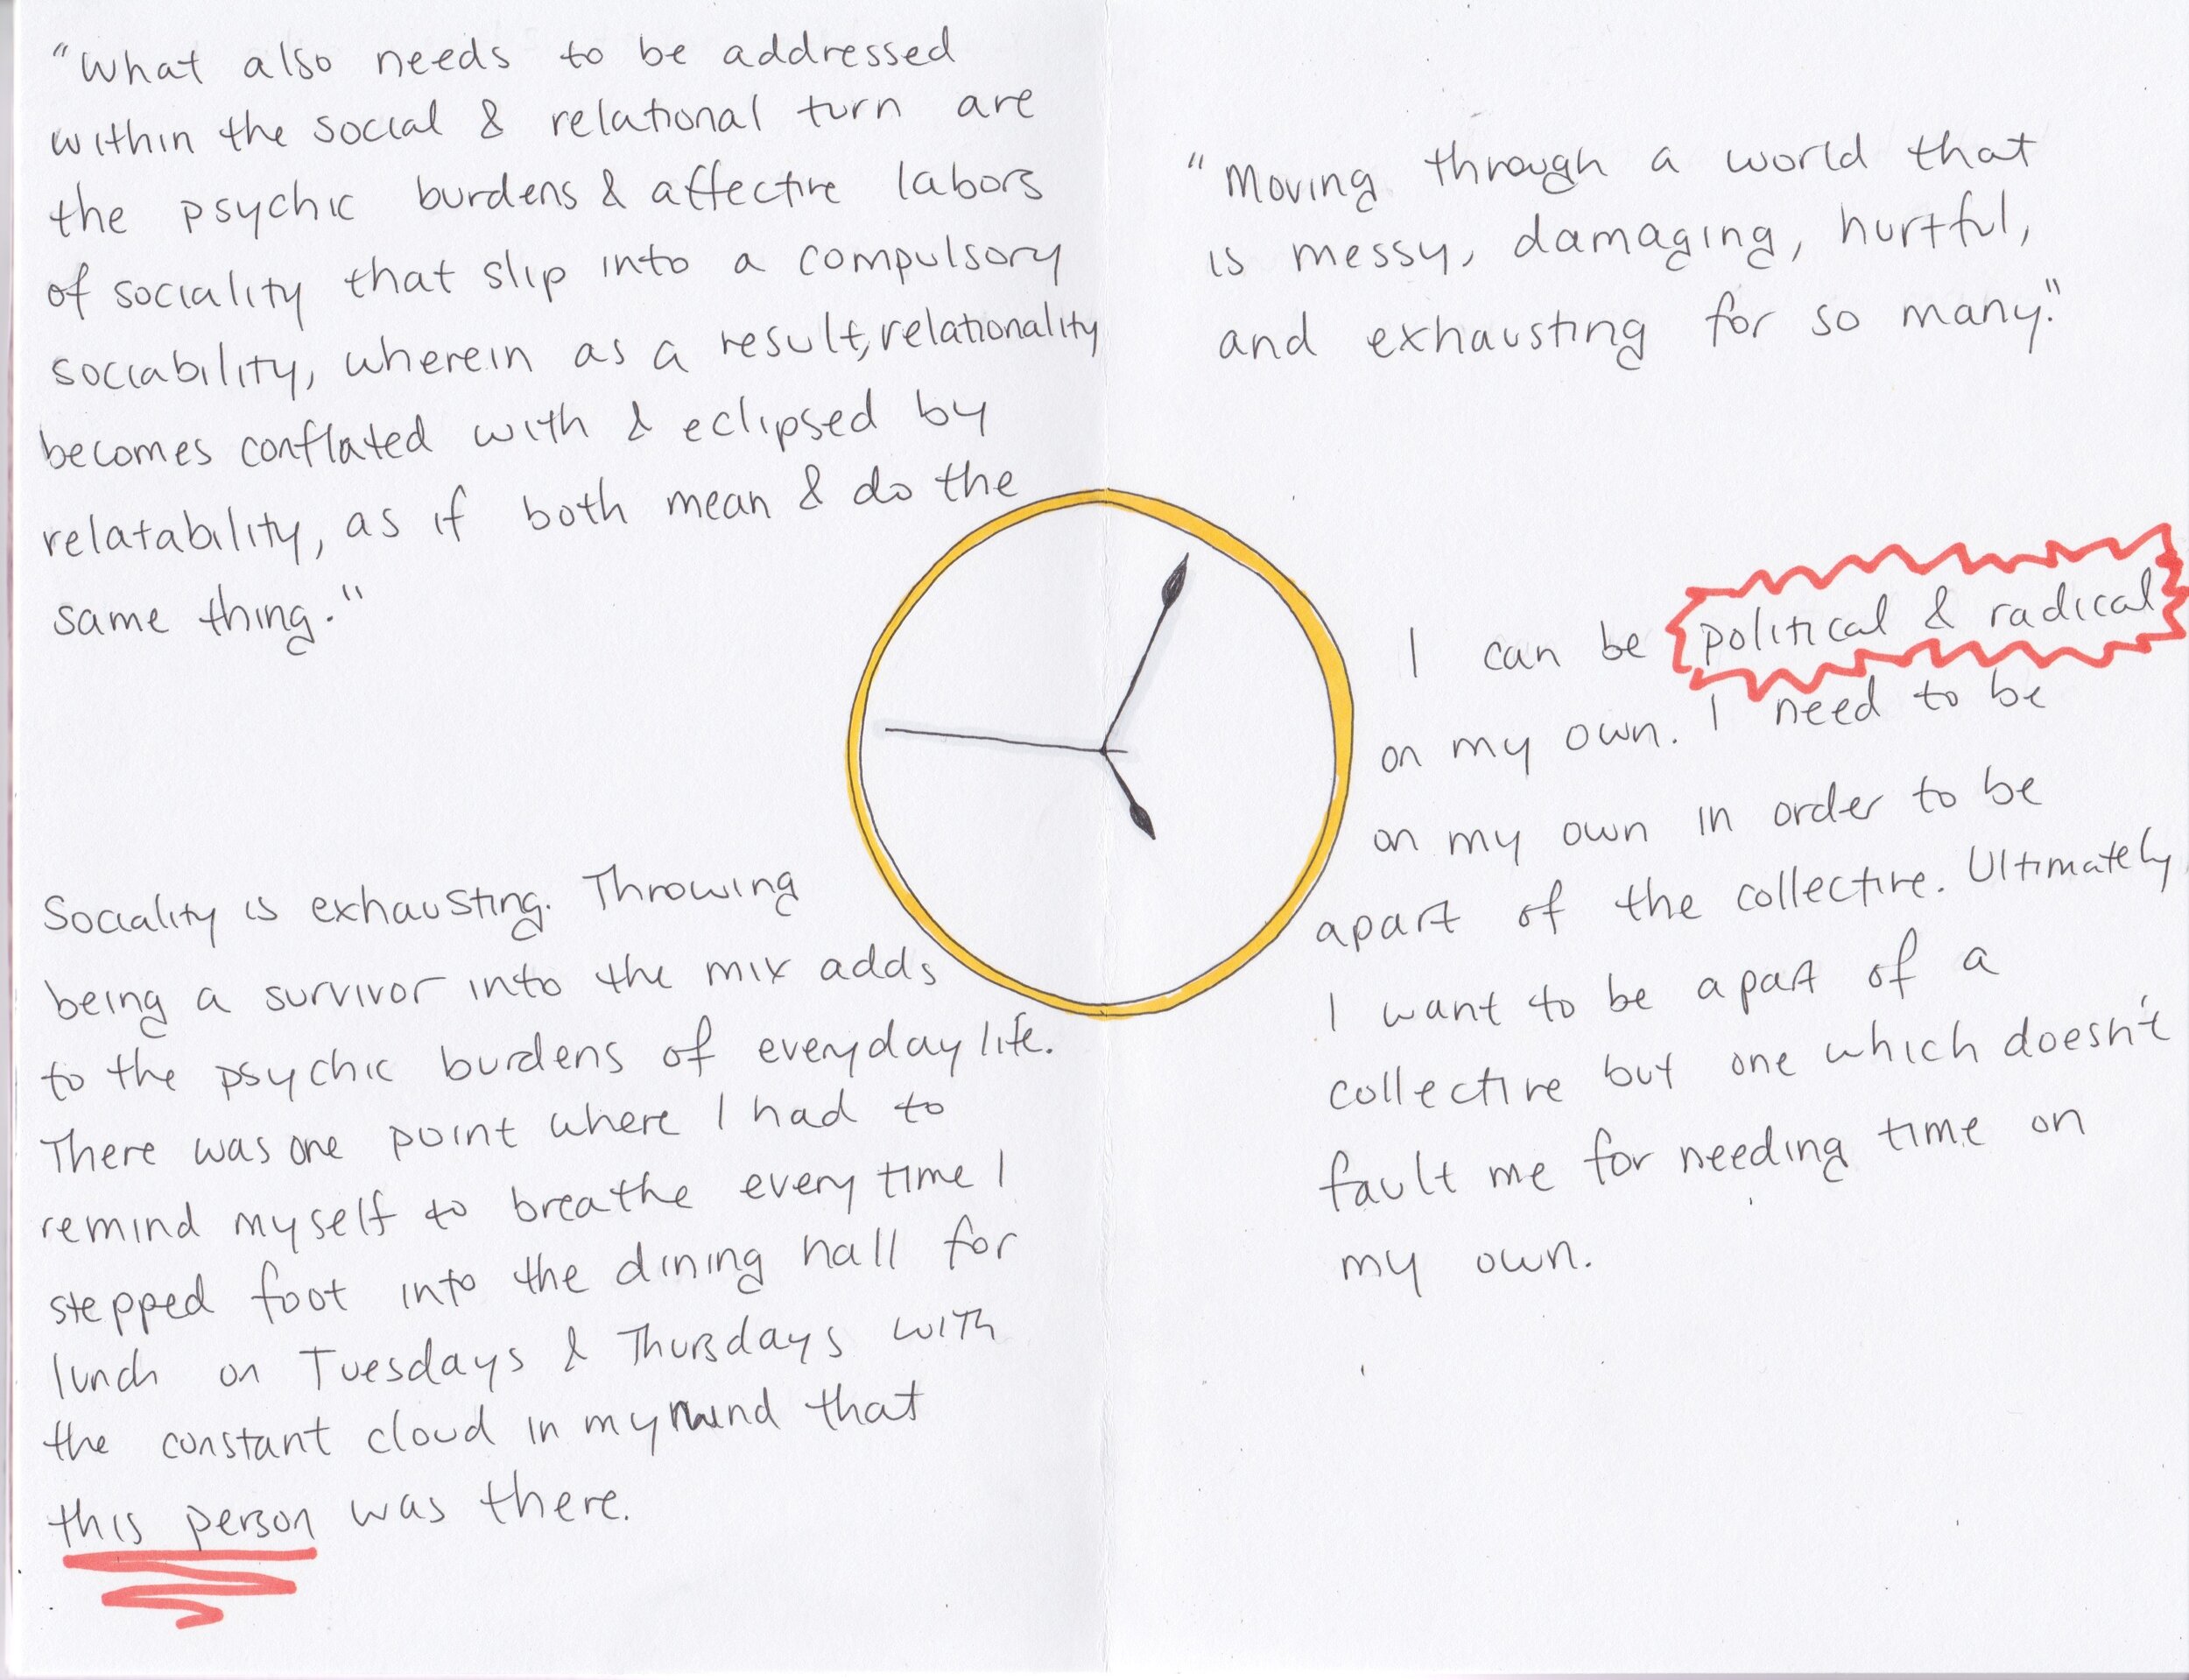 "What also needs to be addressed
within the social & relational turn are
the psychic burdens & affective labors
of sociality that slip into a compulsory
sociability, wherein as a result, relationality
becomes conflated with & eclipsed by
relatability, as if both mean & do the
same thing."
Sociality is exhausting. Throwing
being a survivor into the mix adds
to the psychic burdens of everyday life.
There was one point where I had to
remind myself to breathe every time I
stepped foot into the dining hall for
lunch on Tuesdays & Thursdays with
the constant cloud in my mind that
this person was there.
"Moving through a world that
is messy, damaging, hurtful,
and exhausting for so many."
I can be political & radical
on my own. I need to be
on my own in order to be
apart of the collective. Ultimately
I want to be apart of a
collective but one which doesn't
fault me for needing time on
my own.